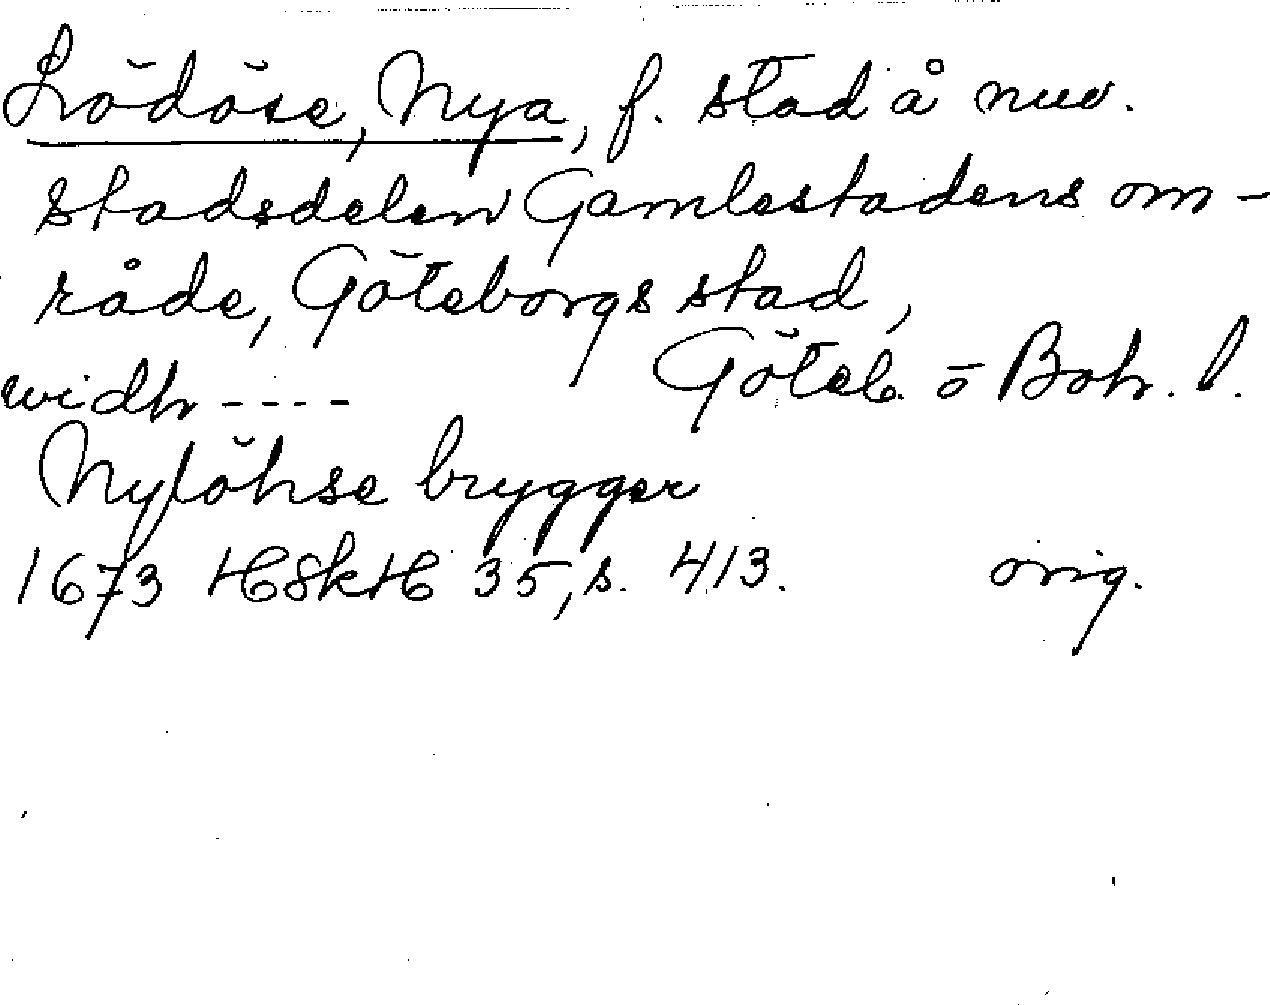 Lödöse, Nya, f. stad å nuv.
stadsdelen Gamlestadens om-
råde, Göteborgs stad,
Göteb. o Boh. l.
widh ----
Nylöhse brygger
1673 HSkH 35, s. 413. orig.